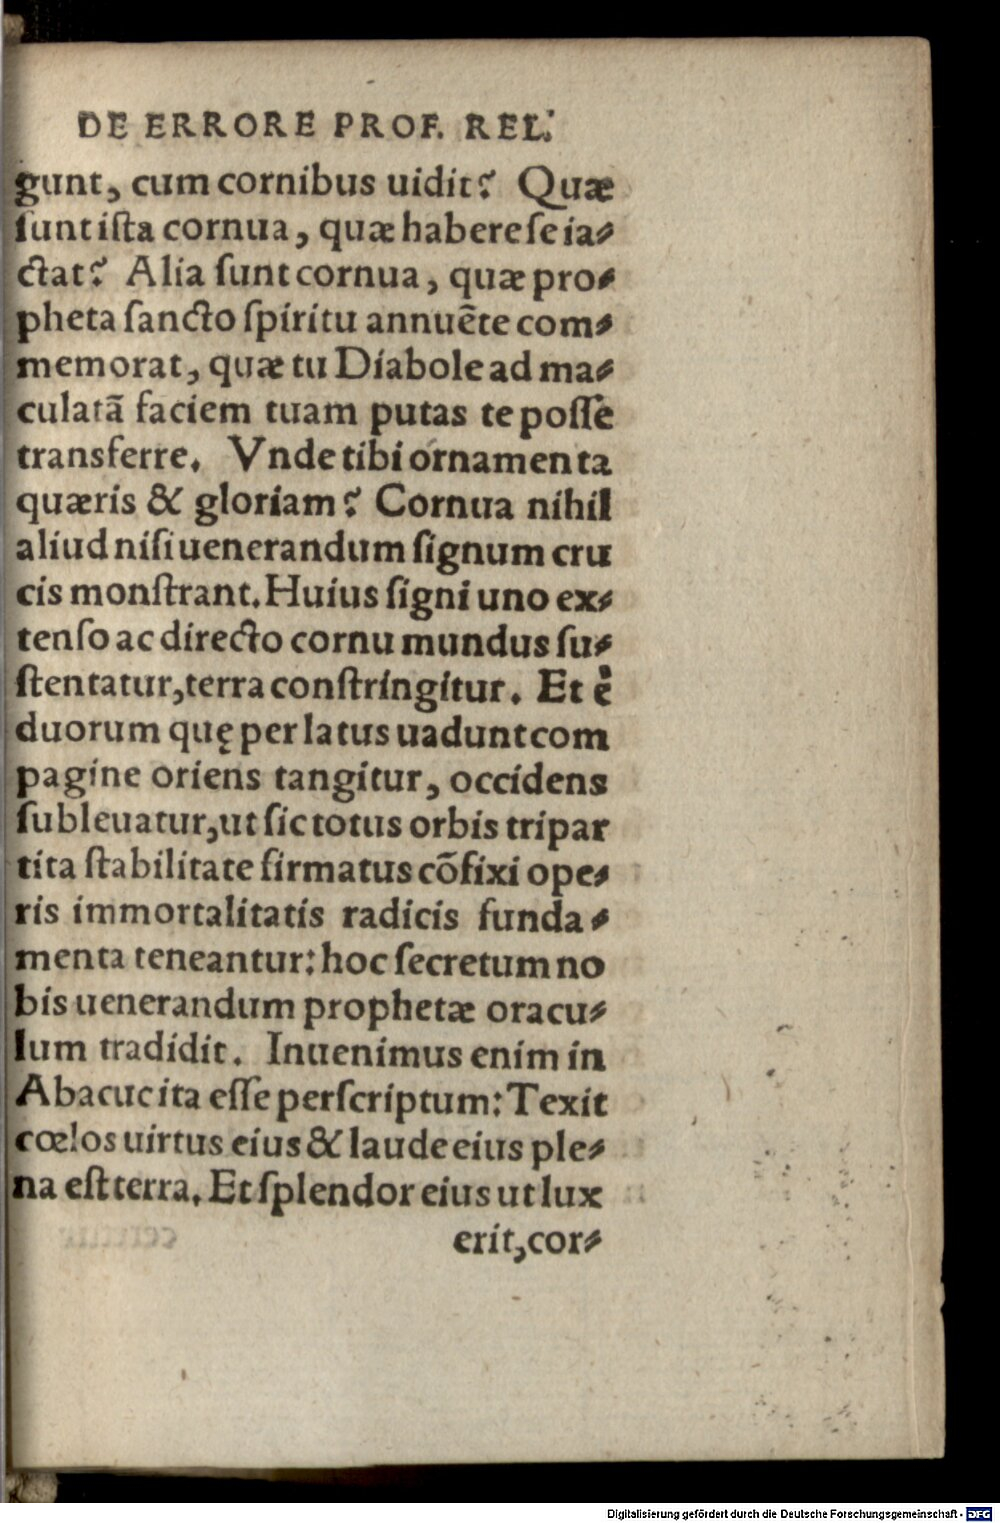 DE ERRORE PROF. REL.
gunt, cum cornibus uidit? Quæ
ſunt iſta cornua, quæ habere ſe ia-
ctat? Alia ſunt cornua, quæ pro-
pheta ſancto ſpiritu annuẽte com-
memorat, quæ tu Diabole ad ma-
culatã faciem tuam putas te poſſe
transferre. Vnde tibi ornamenta
quæris & gloriam? Cornua nihil
aliud niſi uenerandum ſignum cru
cis monſtrant. Huius ſigni uno ex-
tenſo ac directo cornu mundus ſu-
ſtentatur, terra conſtringitur. Et ẽ
duorum quę per latus uadunt com
pagine oriens tangitur, occidens
ſubleuatur, ut ſic totus orbis tripar
tita ſtabilitate firmatus cõfixi ope-
ris immortalitatis radicis funda-
menta teneantur: hoc ſecretum no
bis uenerandum prophetæ oracu-
lum tradidit. Inuenimus enim in
Abacuc ita eſſe perſcriptum: Texit
cœlos uirtus eius & laude eius ple-
na eſt terra. Et ſplendor eius ut lux
erit, cor-
Digitalisierung gefördert durch die Deutsche Forschungsgemeinschaft - DFG